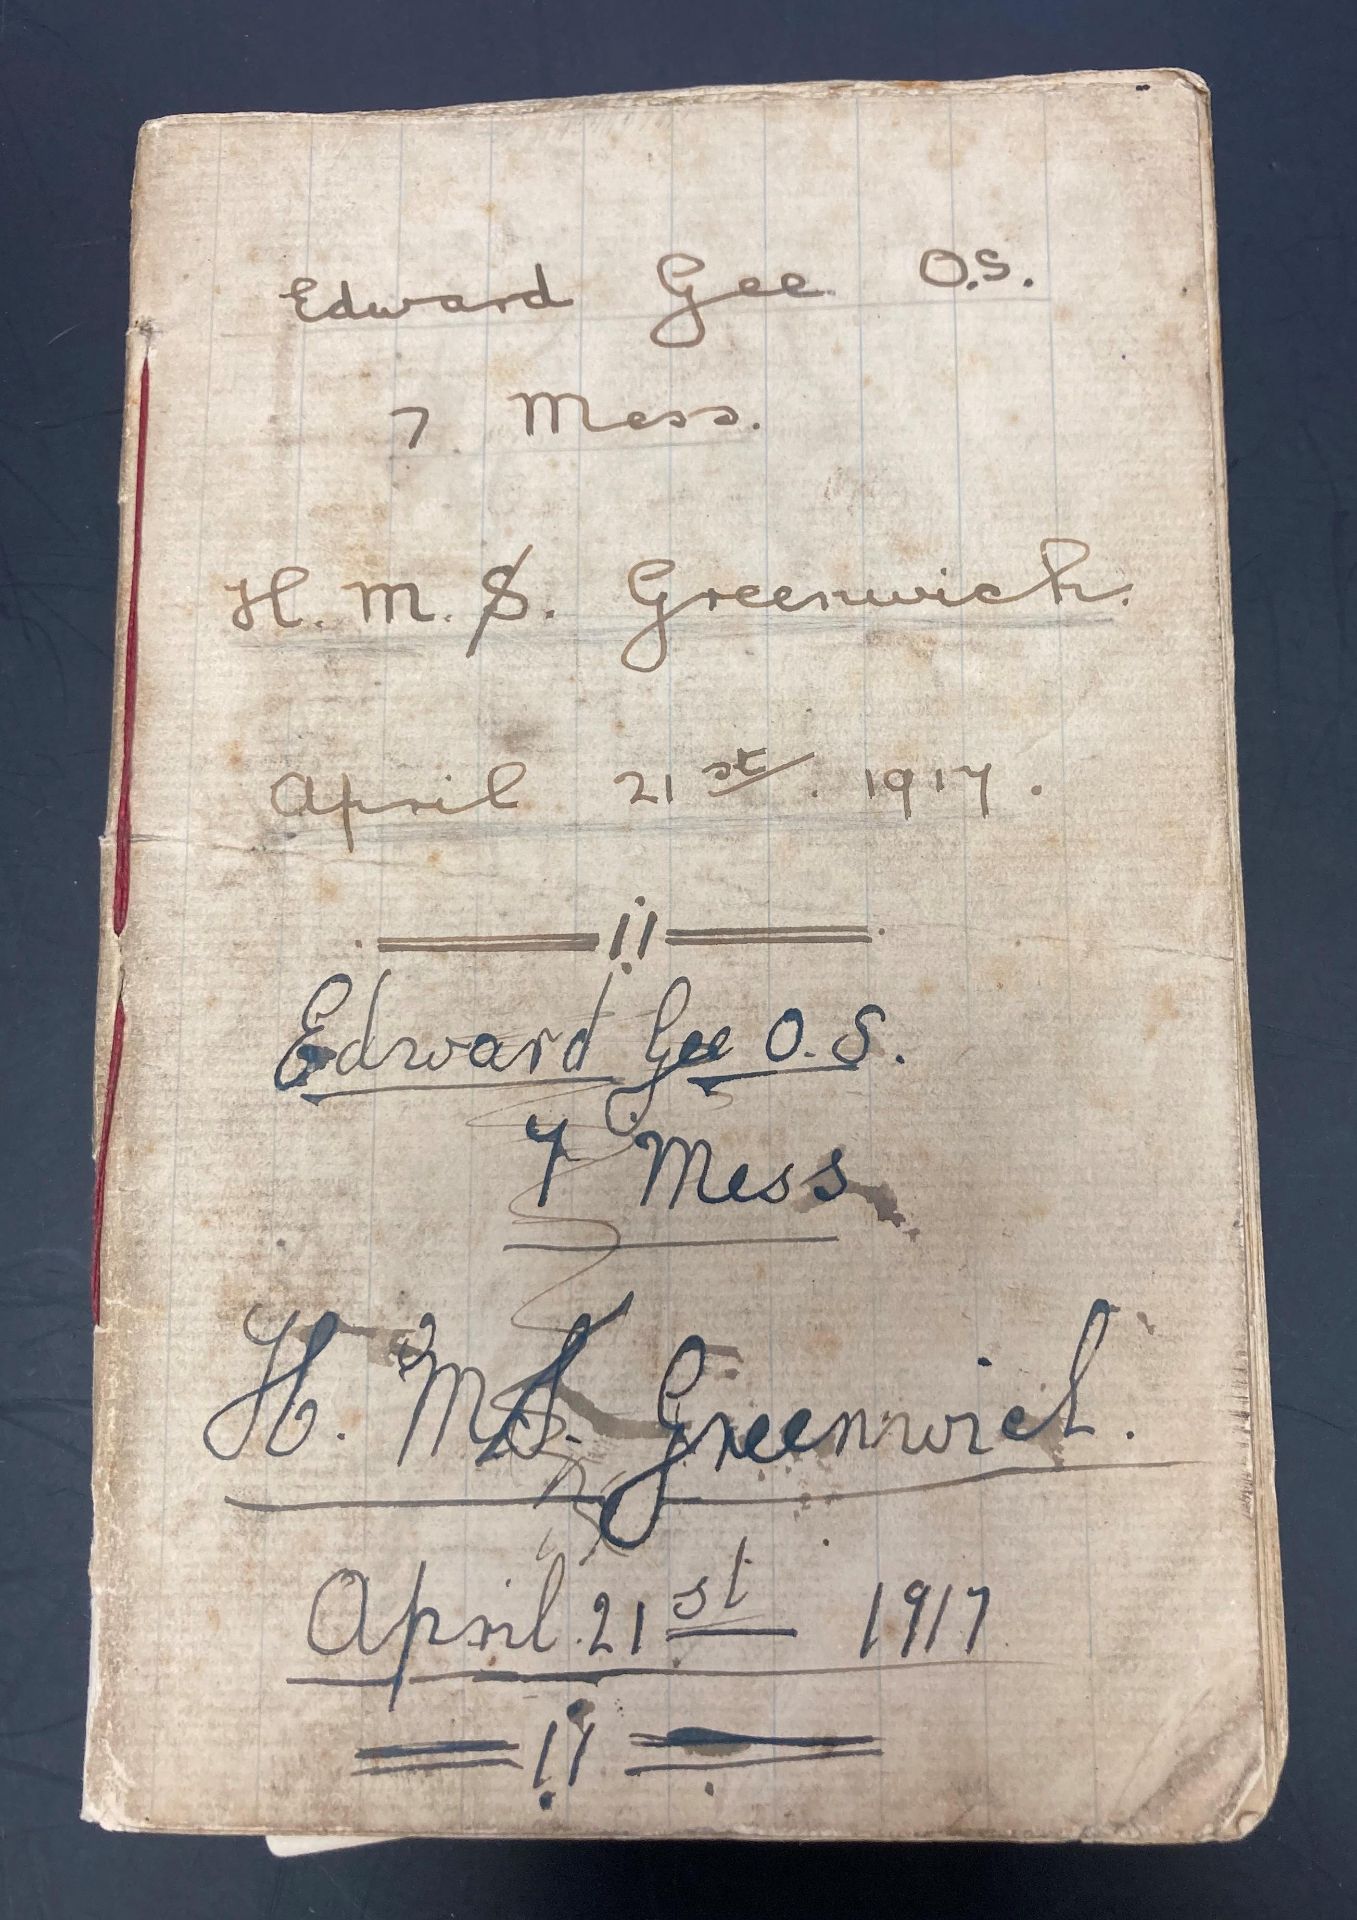 Edward Gee O.S.
7 Mess.
H. M. S. Greenwich.
April 21st. 1917.
Edward Gee O. S.
7 Mess
H. M. S. Greenwich.
April. 21st 1917